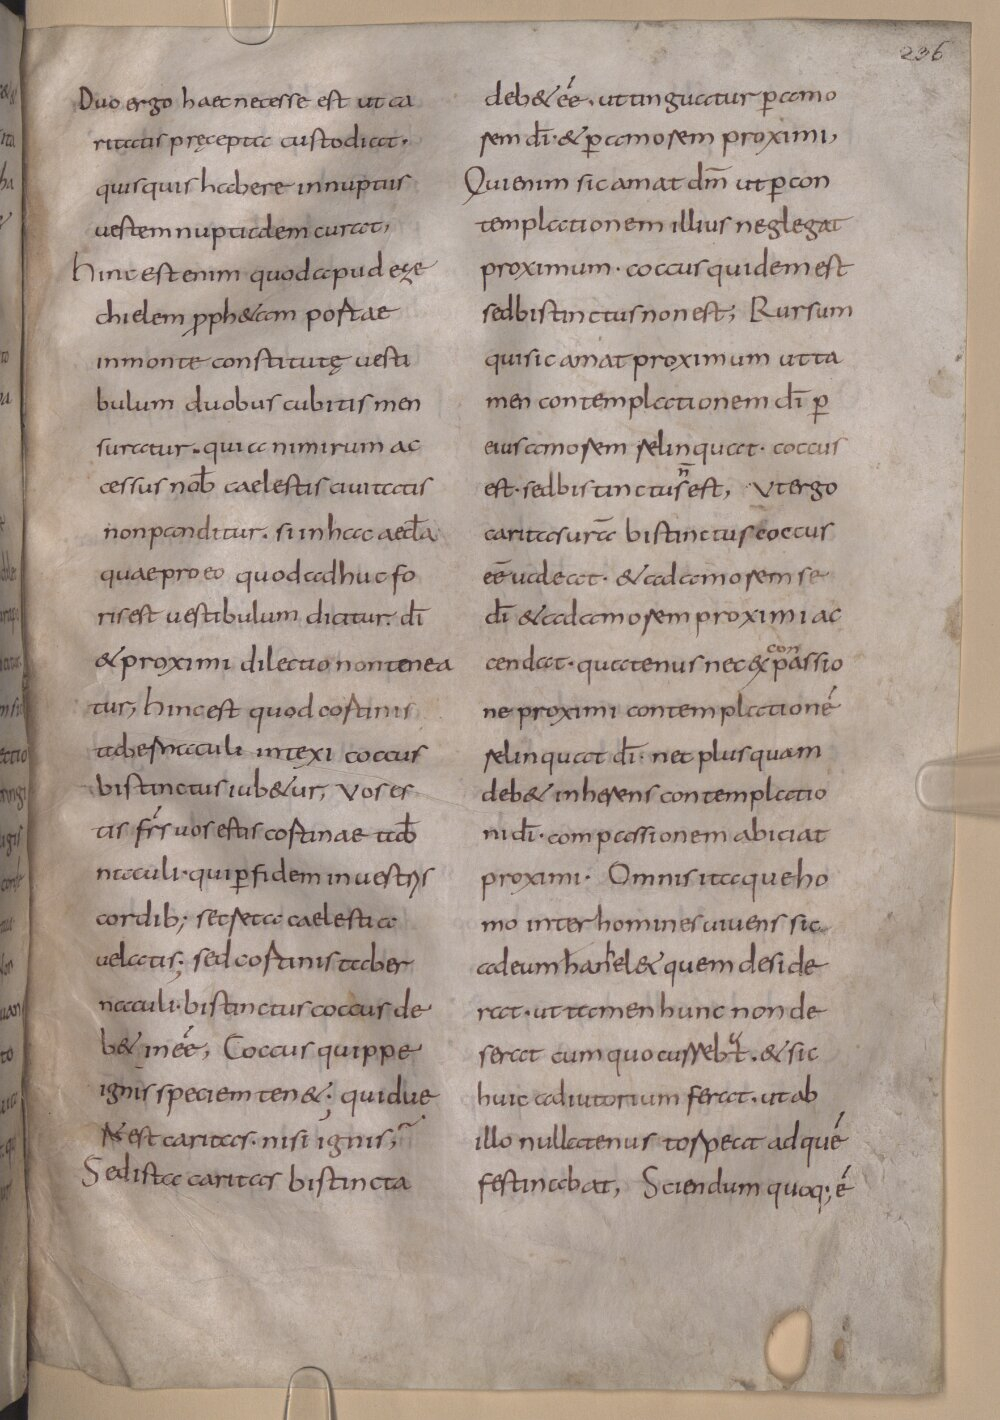 236
Duo ergo haec necesse est ut ca
ritatis pręcepta custodiat.
quisquis habere in nuptiis
vestem nuptialem curat,
hinc est enim quod apud eze
chielem p̱ph&am portae
in monte constitutę vesti
bulum duobus cubitis men
suratur. quia nimirum ac
cessus nob̄ caelestis civitatis
non panditur. si in hac aecl̄a
quae pro eo quod adhuc fo
ris est vestibulum dicitur. dī
& proximi dilectio non tenea
tur, hinc est quod cortinis
tabernaculi intexi coccus
bistinctus iub&ur, Vos es
tis fr̄s vos estis cortinae tab̄
naculi. qui ꝑ fidem in vestris
cordib; secreta caelestia
velatis; sed cortinis taber
naculi. bistinctus coccus de
b& inēe, Coccus quippe
ignis speciem ten&; quid ue
r̄ est caritas. nisi ignis,
Sed ista caritas bistincta
deb& ēe. ut tinguatur ꝑ amo
rem dī. & ꝑ amorem proximi,
Qui enim sic amat dm̄ ut ꝑ con
templationem illius neglegat
proximum. coccus quidem est
sed bistinctus non est, Rursum
qui sic amat proximum ut ta
men contemplationem dī ꝑ
eius amorem relinquat. coccus
est. sed bistinctus n̄ est, Ut ergo
caritas ur̄a bistinctus coccus
ēe valeat. & ad amorem se
dī & ad amorem proximi ac
cendat. quatenus nec ex conpassio
ne proximi contemplationē
relinquat dī. nec plus quam
deb& inherens contemplatio
ni dī. compassionem abiciat
proximi. Omnis itaque ho
mo inter homines vivens sic
ad eum hanhel& quem deside
rat. ut tamen hunc non de
serat cum quo currebat. & sic
huic adiutorium ferat. ut ab
illo nullatenus torpeat ad quē
festinabat, Sciendum quoq; ē